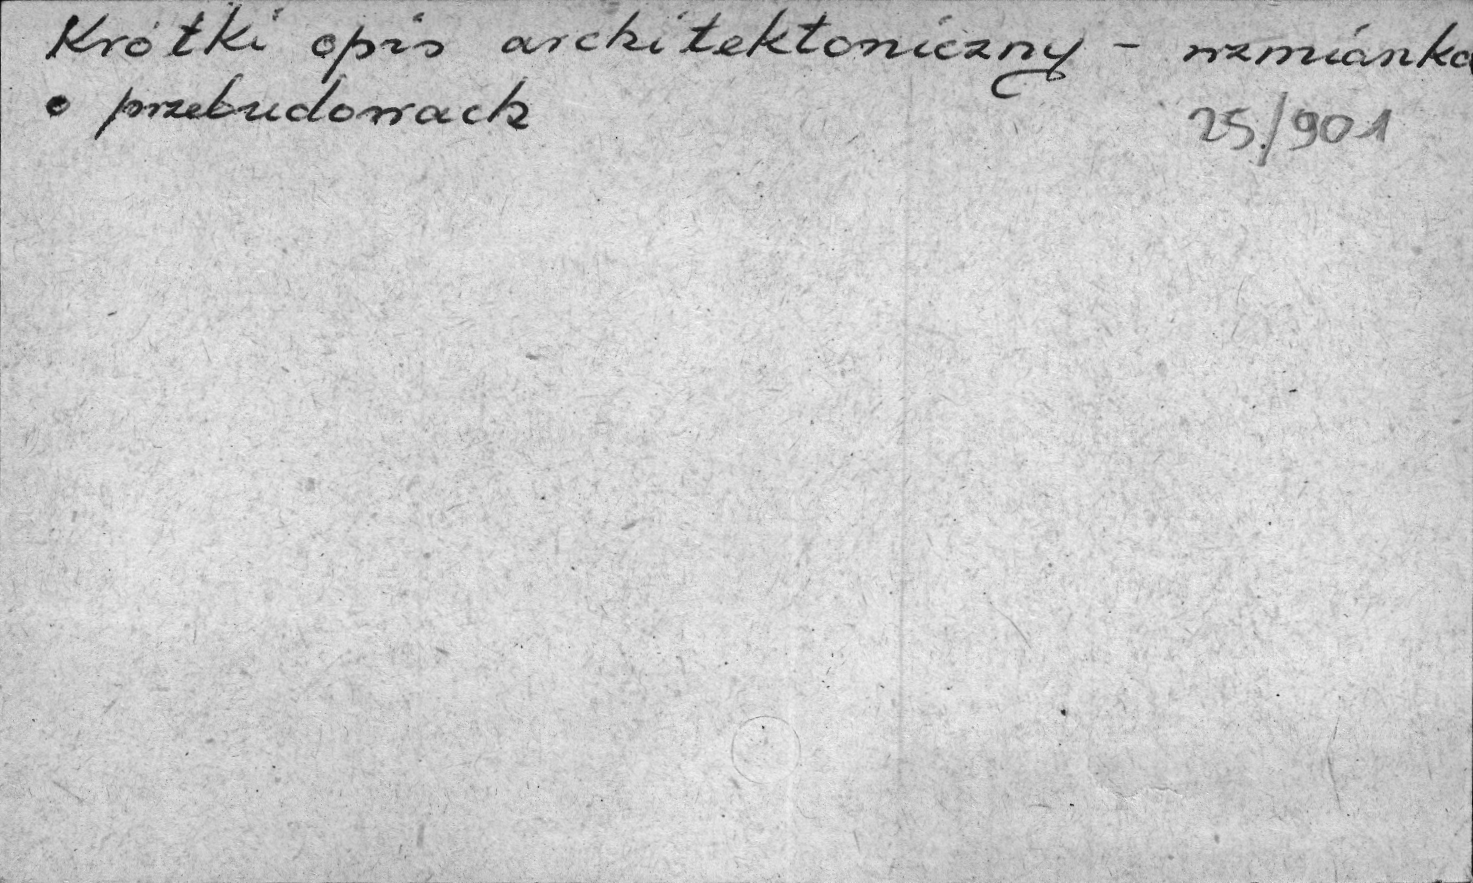 Krótki opis architektoniczny - wzmianka
o przebudowach
25/901